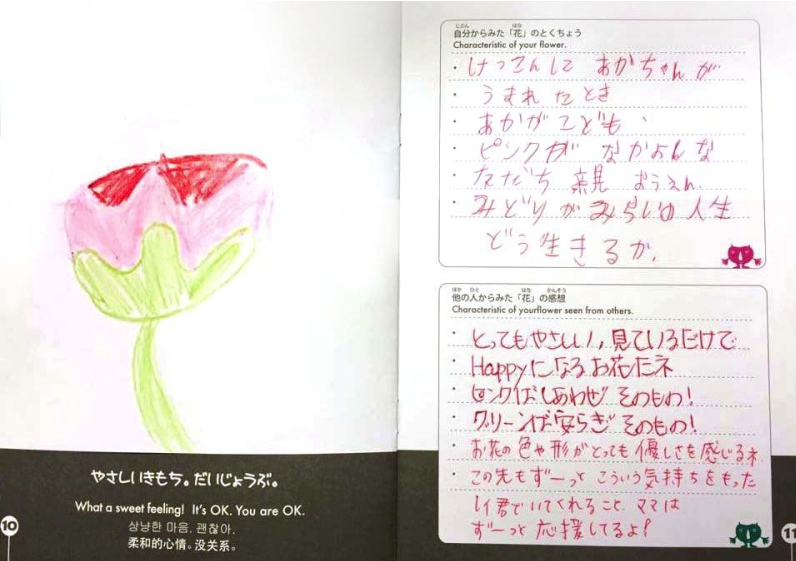 やさしいきもち。だいじょうぶ。
What a sweet feeling! It's OK. You are OK.
상냥한 마음. 괜찮아.
柔和的心情。没关系。
10
じぶん はな
自分からみた「花」のとくちょう
Characteristic of your flower.
・けっこんして あかちゃんが
・うまれたとき
・あかがこども、
・ピンクが なかよしな
・ともだち 親 おうえん
・みどりがみらいゆ人生
どう生きるか.
ほか ひと はな かんそう
他の人からみた「花」の感想
Characteristic of yourflower seen from others.
・とってもやさしい,見ているだけで
・Happyになるお花だネ
・ピンクはしあわせそのもの!
・グリーンは安らぎそのもの!
・お花の色や形がとっても優しさを感じるネ
・この先もず〜っとこういう気持ちをもった
君でいてくれること ママは
ず〜っと応援してるよ!
11